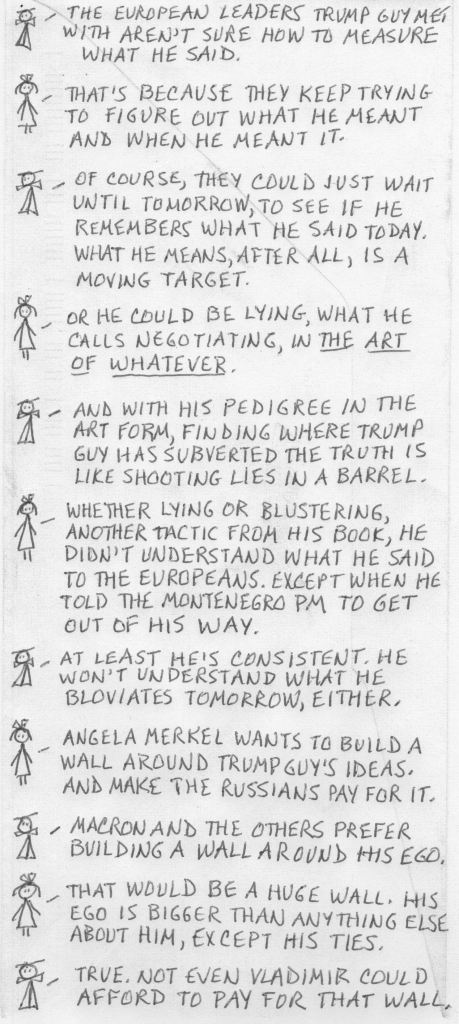 THE EUROPEAN LEADERS TRUMP GUY MET
WITH AREN'T SURE HOW TO MEASURE
WHAT HE SAID.
THAT'S BECAUSE THEY KEEP TRYING
TO FIGURE OUT WHAT HE MEANT
AND WHEN HE MEANT IT.
OF COURSE, THEY COULD JUST WAIT
UNTIL TOMORROW, TO SEE IF HE
REMEMBERS WHAT HE SAID TODAY.
WHAT HE MEANS, AFTER ALL, IS A
MOVING TARGET.
OR HE COULD BE LYING, WHAT HE
CALLS NEGOTIATING, IN THE ART
OF WHATEVER.
AND WITH HIS PEDIGREE IN THE
ART FORM, FINDING WHERE TRUMP
GUY HAS SUBVERTED THE TRUTH IS
LIKE SHOOTING LIES IN A BARREL.
WHETHER LYING OR BLUSTERING,
ANOTHER TACTIC FROM HIS BOOK, HE
DIDN'T UNDERSTAND WHAT HE SAID
TO THE EUROPEANS. EXCEPT WHEN HE
TOLD THE MONTENEGRO PM TO GET
OUT OF HIS WAY.
AT LEAST HE'S CONSISTENT. HE
WON'T UNDERSTAND WHAT HE
BLOVIATES TOMORROW, EITHER.
ANGELA MERKEL WANTS TO BUILD A
WALL AROUND TRUMP GUY'S IDEAS.
AND MAKE THE RUSSIANS PAY FOR IT.
MACRON AND THE OTHERS PREFER
BUILDING A WALL AROUND HIS EGO.
THAT WOULD BE A HUGE WALL. HIS
EGO IS BIGGER THAN ANYTHING ELSE
ABOUT HIM, EXCEPT HIS TIES.
TRUE. NOT EVEN VLADIMIR COULD
AFFORD TO PAY FOR THAT WALL.